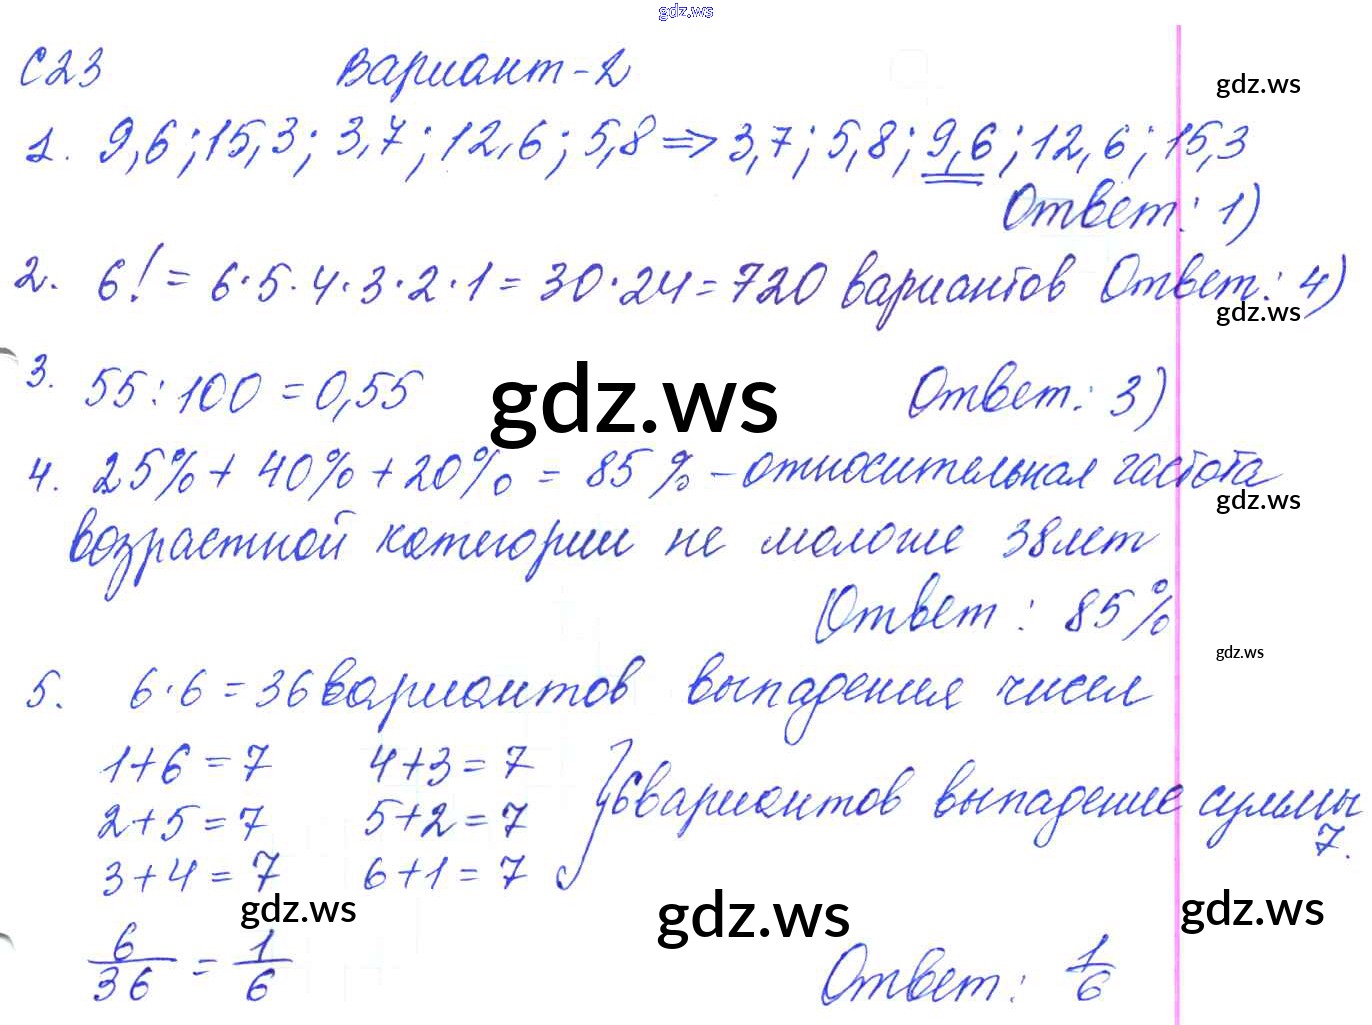 gdz.ws
С23 Вариант-2
gdz.ws
1. 9,6; 15,3; 3,7; 12,6; 5,8 => 3,7; 5,8; 9,6; 12,6; 15,3
Ответ: 1)
2. 6! = 6·5·4·3·2·1 = 30·24 = 720 вариантов Ответ: 4)
gdz.ws
3. 55:100 = 0,55 Ответ: 3)
gdz.ws
4. 25% + 40% + 20% = 85% - относительная частота
gdz.ws
возрастной категории не моложе 38 лет
Ответ: 85%
gdz.ws
5. 6·6 = 36 вариантов выпадения чисел
1+6=7 4+3=7
2+5=7 5+2=7 6 вариантов выпадение суммы 7.
3+4=7 6+1=7
gdz.ws gdz.ws gdz.ws
6/36 = 1/6 Ответ: 1/6